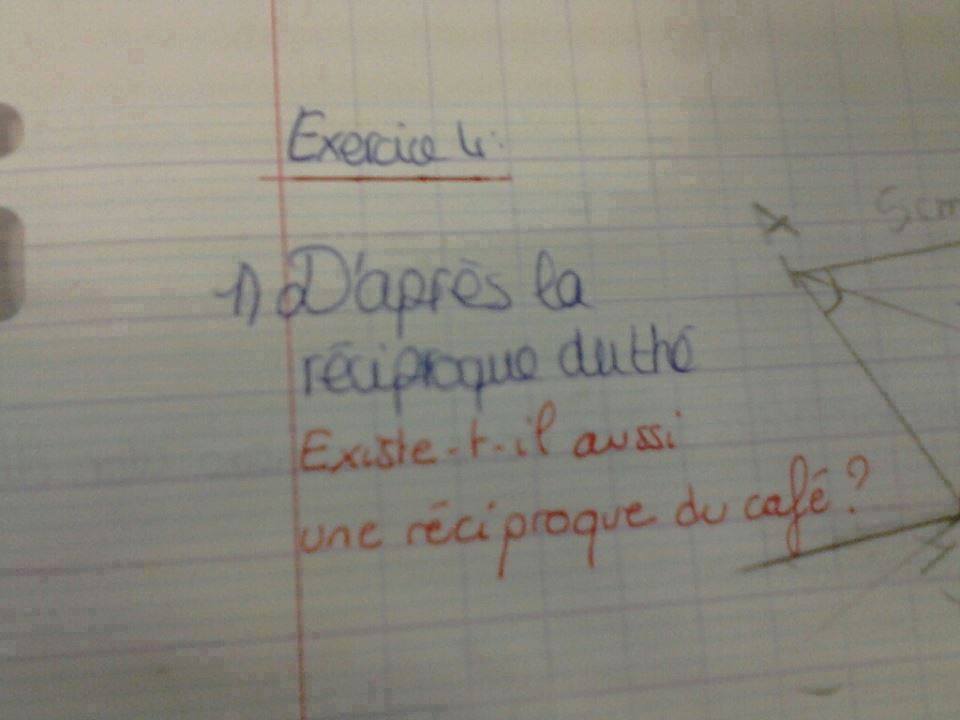 Exercice 4:
1) D'après la
réciproque du thé
Existe-t-il aussi
une réciproque du café ?
X
5 cm